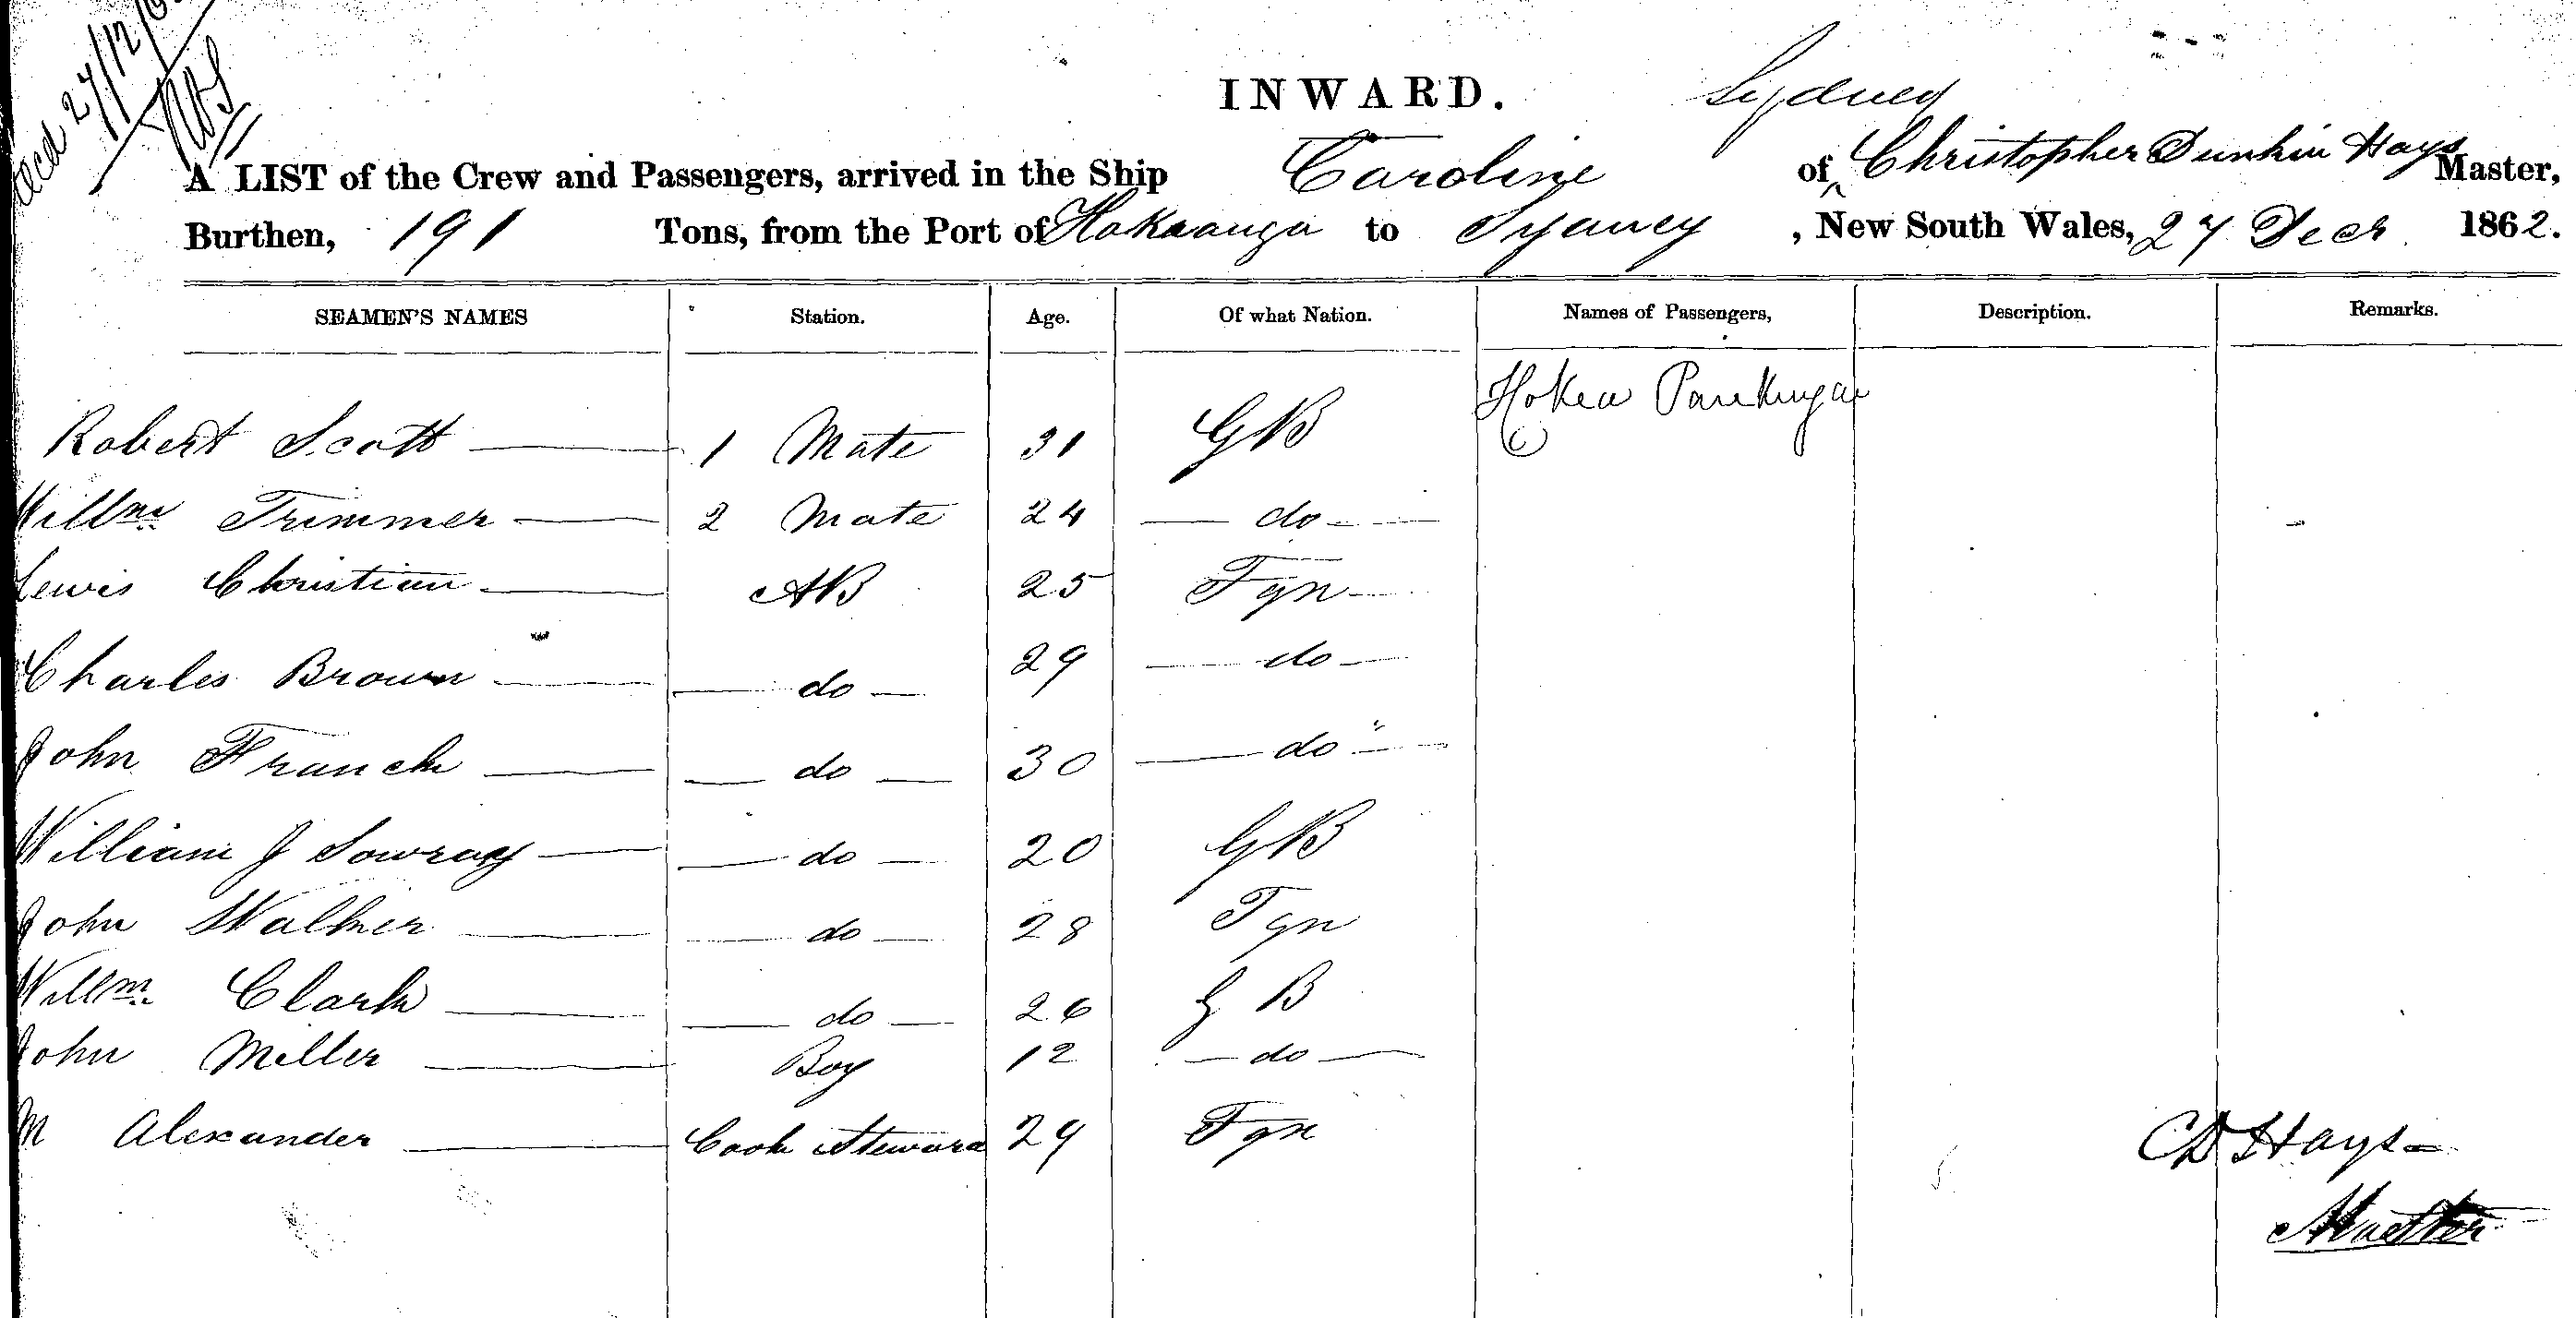 27/12/
INWARD.
Sydney
A LIST of the Crew and Passengers, arrived in the Ship Caroline of Christopher Dunkin Hays Master,
Burthen, 191 Tons, from the Port of Hokeanga to Sydney, New South Wales, 27 Decr 1862.
SEAMEN'S NAMES Station. Age. Of what Nation. Names of Passengers, Description. Remarks.
Hokea
Robert Scott 1 Mate 31 GB
Willm Trimmer 2 Mate 24 do
Lewis Christian AB 25 Fgn
Charles Brown do 29 do
John Franck do 30 do
William J Sowray do 20 GB
John Walker do 28 Fgn
Willm Clark do 26 G B
John Miller Boy 12 do
M Alexander Cook Steward 29 Fgn
CD Hays
Master